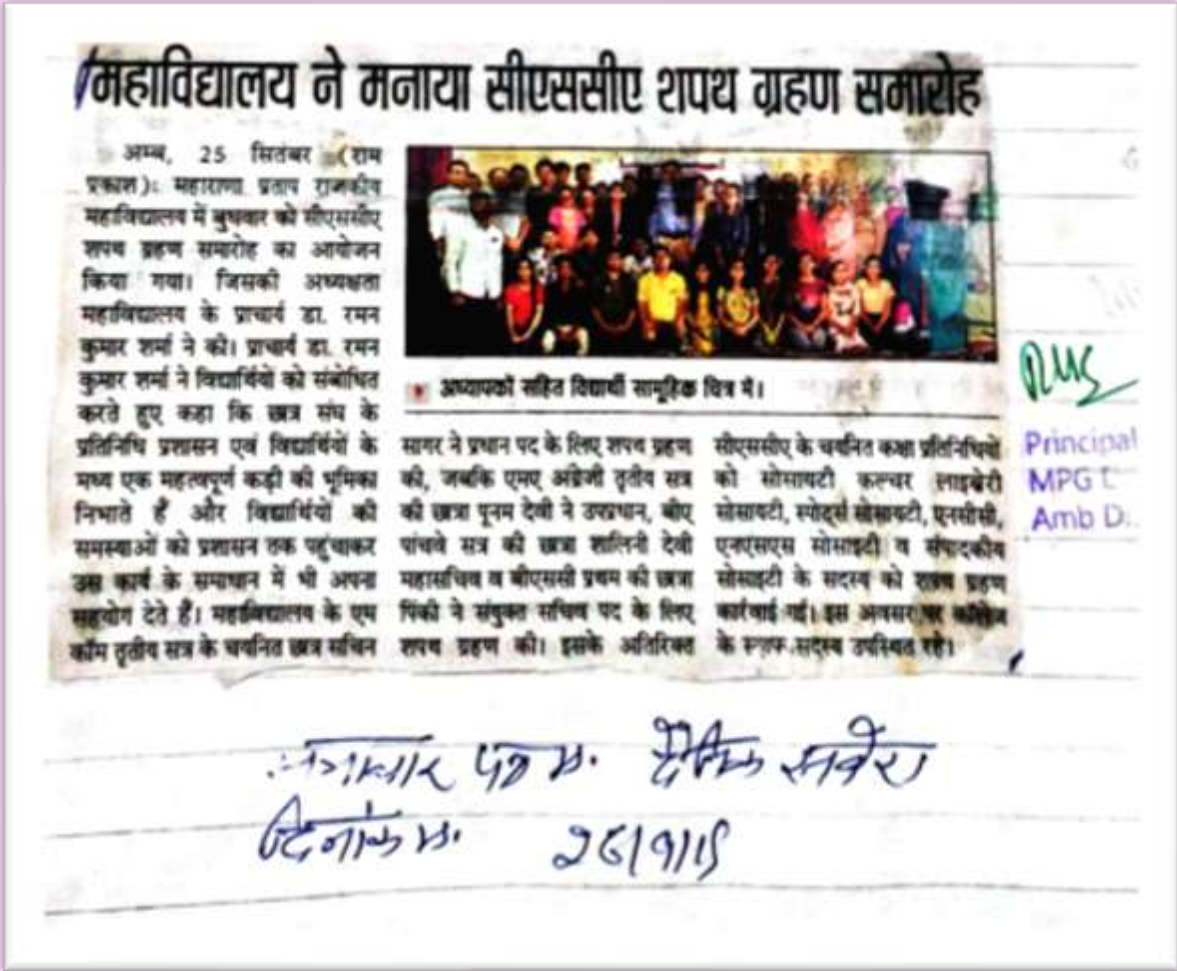 महाविद्यालय ने मनाया सीएससीए शपथ ग्रहण समारोह
अम्ब, 25 सितंबर (राम
प्रकाश): महाराणा प्रताप राजकीय
महाविद्यालय में बुधवार को सीएससीए
शपथ ग्रहण समारोह का आयोजन
किया गया। जिसकी अध्यक्षता
महाविद्यालय के प्राचार्य डा. रमन
कुमार शर्मा ने की। प्राचार्य डा. रमन
कुमार शर्मा ने विद्यार्थियों को संबोधित
करते हुए कहा कि छात्र संघ के
प्रतिनिधि प्रशासन एवं विद्यार्थियों के
मध्य एक महत्वपूर्ण कड़ी की भूमिका
निभाते हैं और विद्यार्थियों की
समस्याओं को प्रशासन तक पहुंचाकर
उस कार्य के समाधान में भी अपना
सहयोग देते हैं। महाविद्यालय के एम
कॉम तृतीय सत्र के चयनित छात्र सचिन
अध्यापकों सहित विद्यार्थी सामूहिक चित्र में।
सागर ने प्रधान पद के लिए शपथ ग्रहण
की, जबकि एमए अंग्रेजी तृतीय सत्र
की छात्रा पूनम देवी ने उपप्रधान, बीए
पांचवे सत्र की छात्रा शालिनी देवी
महासचिव व बीएससी प्रथम की छात्रा
पिंकी ने संयुक्त सचिव पद के लिए
शपथ ग्रहण की। इसके अतिरिक्त
सीएससीए के चयनित कक्षा प्रतिनिधियों
को सोसायटी कल्चर लाइब्रेरी
सोसायटी, स्पोर्ट्स सोसायटी, एनसीसी,
एनएसएस सोसाइटी व संपादकीय
सोसाइटी के सदस्य को शपथ ग्रहण
कार्रवाई गई। इस अवसर पर कॉलेज
के स्टाफ सदस्य उपस्थित रहे।
Principal
MPG
Amb D
पत्र दैनिक सवेरा
दिनांक 26/9/19